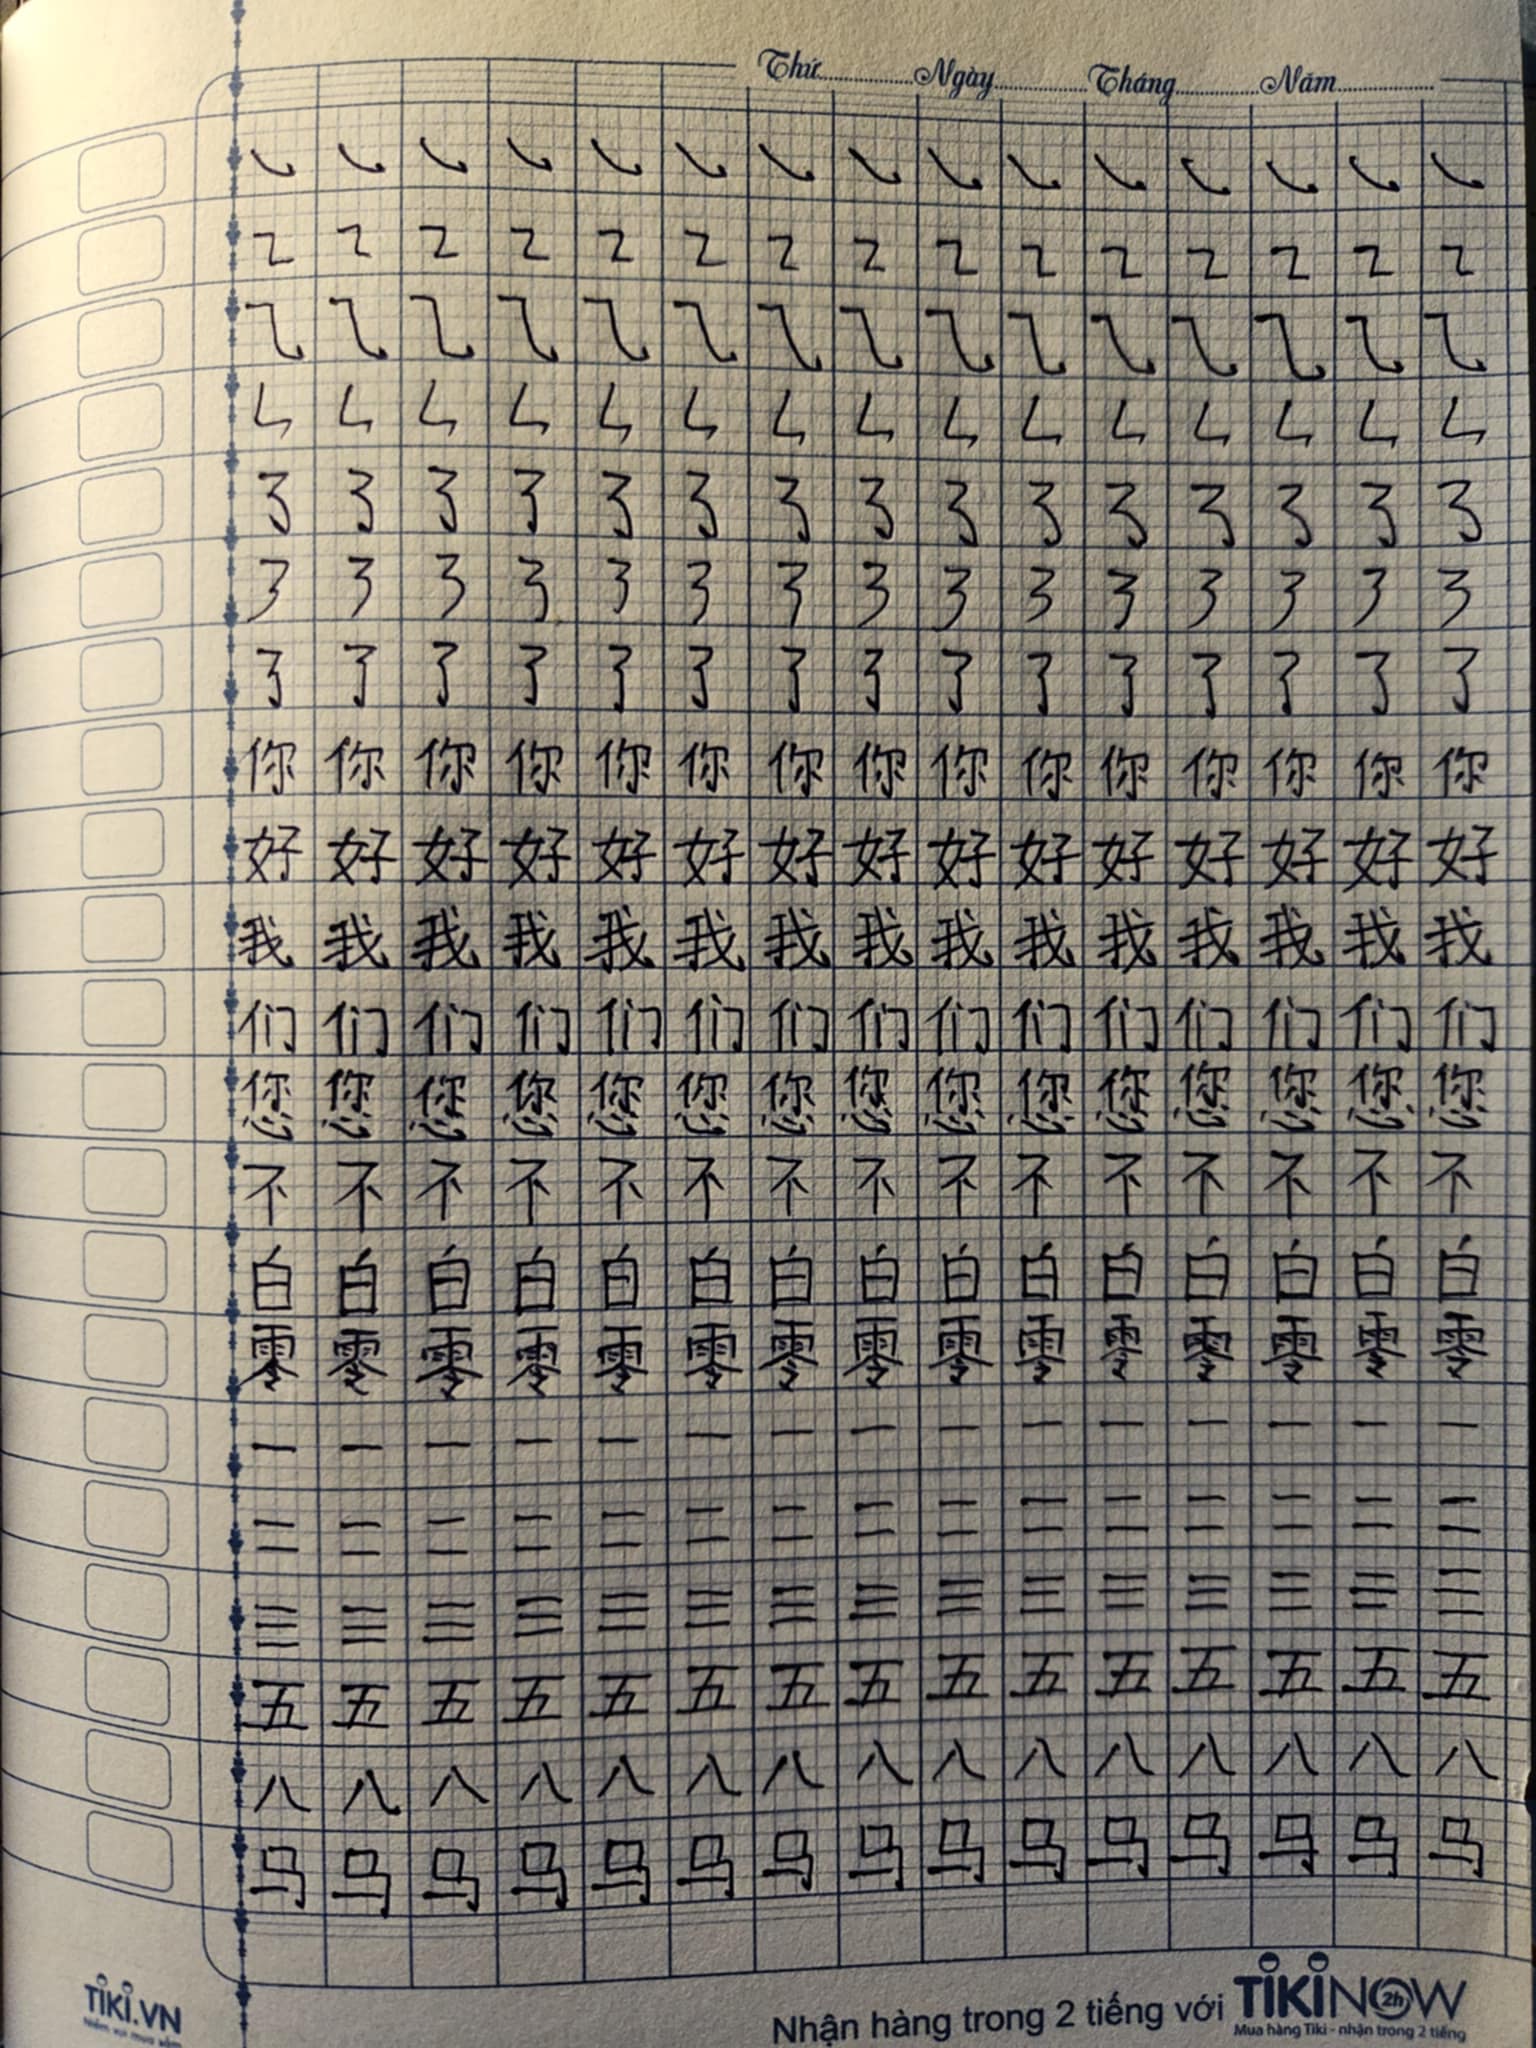 Thứ..............Ngày..............Tháng..............Năm..............
你你你你你你你你你你你你你你你
好好好好好好好好好好好好好好好
我我我我我我我我我我我我我我我
们们们们们们们们们们们们们们们
您您您您您您您您您您您您您您您
不不不不不不不不不不不不不不不
白白白白白白白白白白白白白白白
零零零零零零零零零零零零零零零
一一一一一一一一一一一一一一一
二二二二二二二二二二二二二二二
三三三三三三三三三三三三三三三
五五五五五五五五五五五五五五五
八八八八八八八八八八八八八八八
马马马马马马马马马马马马马马马
TIKI.VN
Nhận hàng trong 2 tiếng với TIKINOW 2h
Mua hàng Tiki - nhận trong 2 tiếng